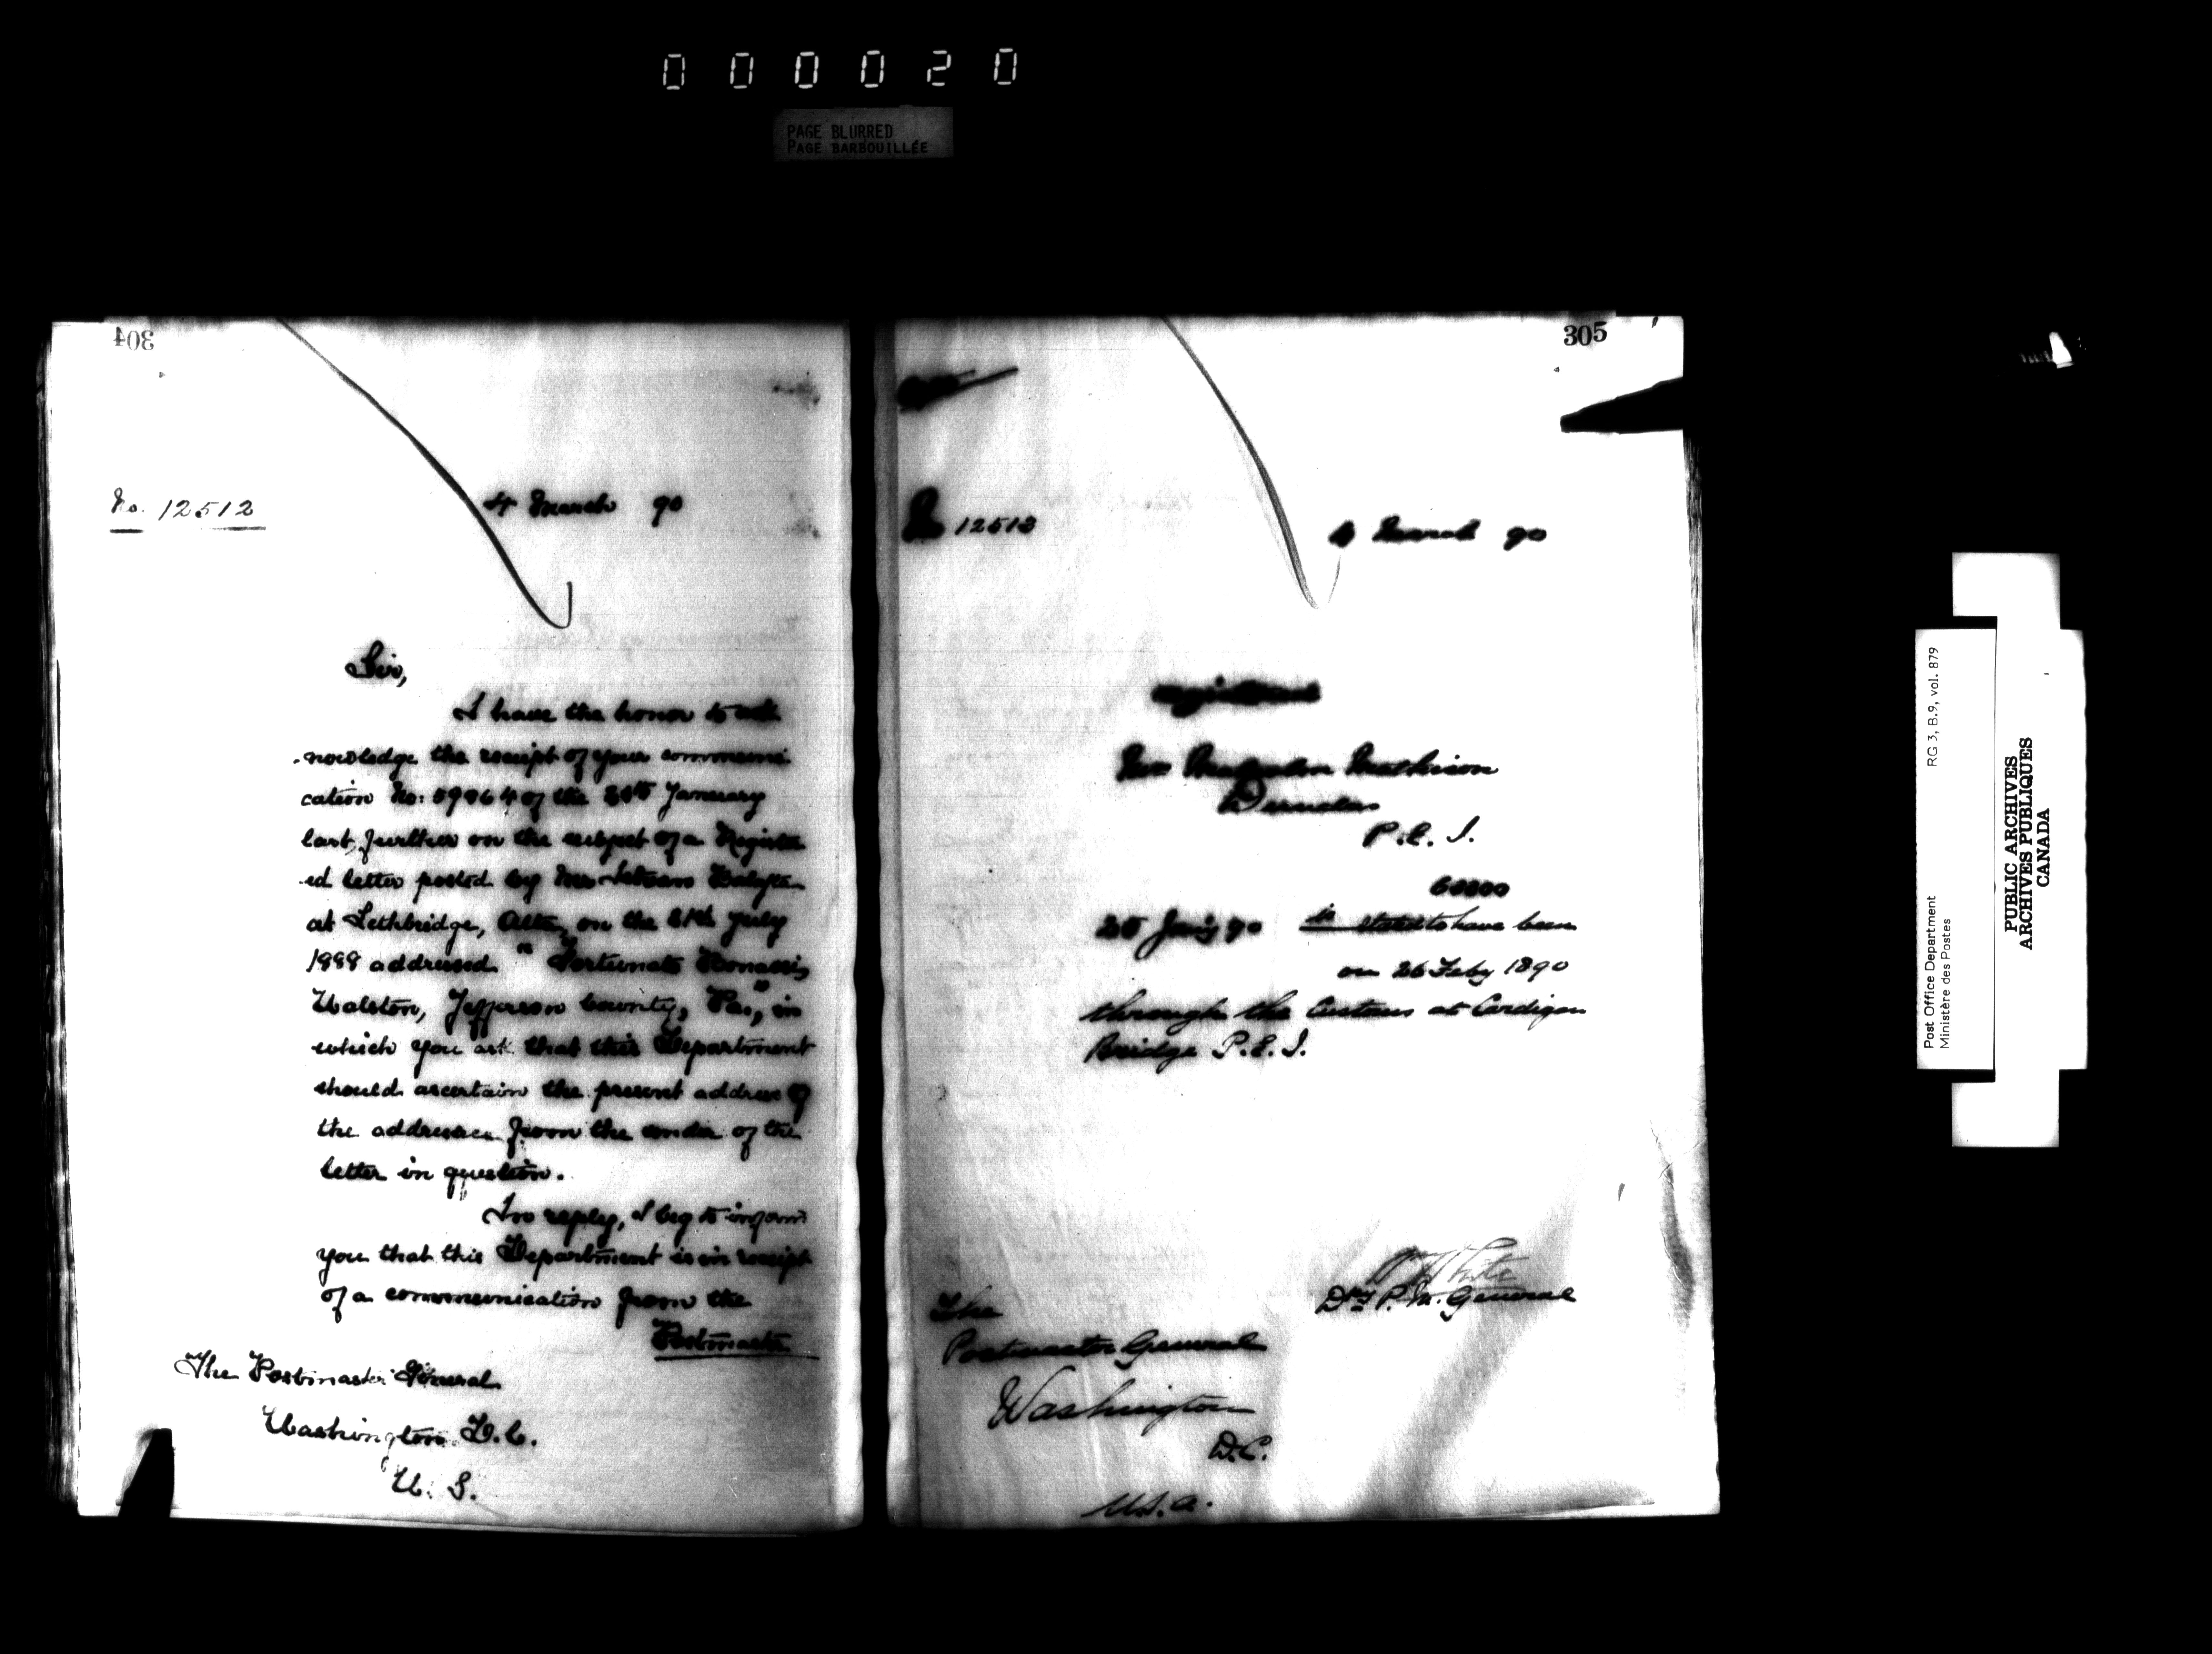 000020
PAGE BLURRED
PAGE BARBOUILLÉE
304
No. 12512
4 March 90
Sir,
I have the honor to ack
nowledge the receipt of your communi
cation No: of the January
last, further on the subject of a Register
ed letter posted by Mr
at Lethbridge, Alta, on the July
1888 addressed "Fortunato
Walston, Jefferson County, Pa.," in
which you ask that this Department
should ascertain the present address of
the addressee from the sender of the
letter in question.
In reply, I beg to inform
you that this Department is in receipt
of a communication from the
Postmaster
The Postmaster General
Washington D.C.
U. S.
305
No 12513
4 March 90
Mr Mathison
P.E.I.
25 Jany 90 is stated to have been
on 26 Feby 1890
through the Customs at Cardigan
Bridge P.E.I.
W White
Dky P. M. General
The
Postmaster General
Washington
D.C.
U.S.A.
RG 3, B.9, vol. 879
Post Office Department
Ministère des Postes
PUBLIC ARCHIVES
ARCHIVES PUBLIQUES
CANADA